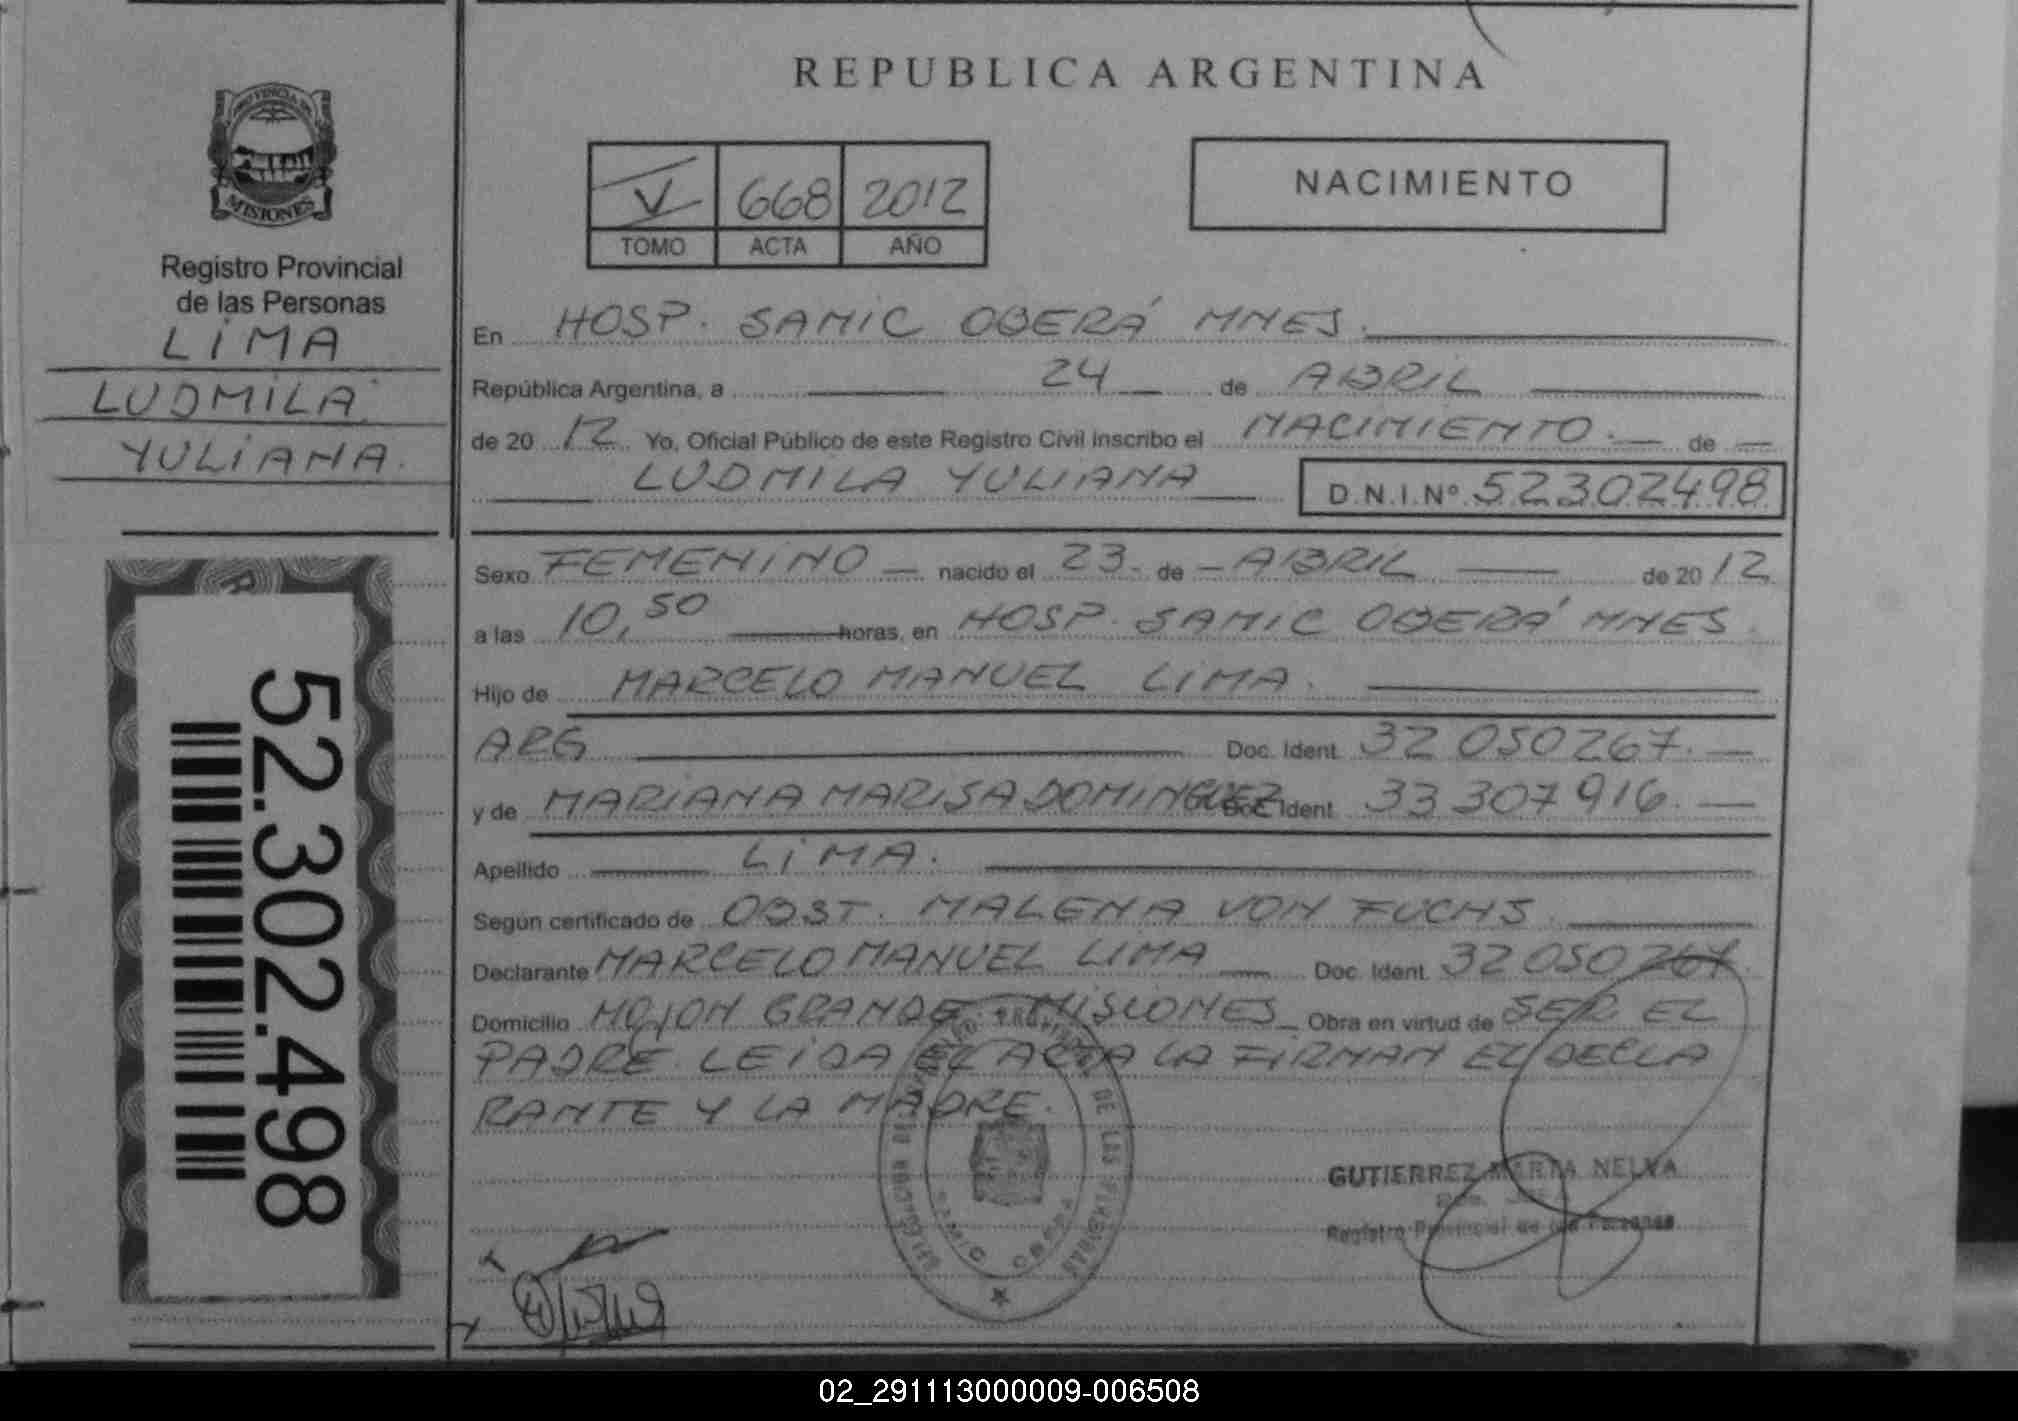 REPUBLICA ARGENTINA
PROVINCIA DE
MISIONES
Registro Provincial
de las Personas
LIMA
LUDMILA
YULIANA.
52.302.498
V 668 2012
TOMO ACTA AÑO
NACIMIENTO
En HOSP. SAMIC OBERÁ MNES.
República Argentina, a 24 de ABRIL
de 20 12 Yo, Oficial Público de este Registro Civil inscribo el NACIMIENTO. de
LUDMILA YULIANA D.N.I.Nº 52302498
Sexo FEMENINO nacido el 23 de ABRIL de 20 12
a las 10,50 horas, en HOSP. SAMIC OBERÁ MNES.
Hijo de MARCELO MANUEL LIMA.
ARG Doc. Ident. 32 050267.
y de MARIANA MARISA DOMINGUEZ Doc. Ident. 33 307916.
Apellido LIMA.
Según certificado de OBST. MALENA VON FUCHS.
Declarante MARCELO MANUEL LIMA Doc. Ident. 32 050 267.
Domicilio MOJON GRANDE MISIONES Obra en virtud de SER EL
PADRE. LEIDA EL ACTA LA FIRMAN EL DECLA
RANTE Y LA MADRE.
DE LAS PERSONAS
SAMIC OBERA
GUTIERREZ MARTA NELVA
Registro Provincial de las Personas
02_291113000009-006508